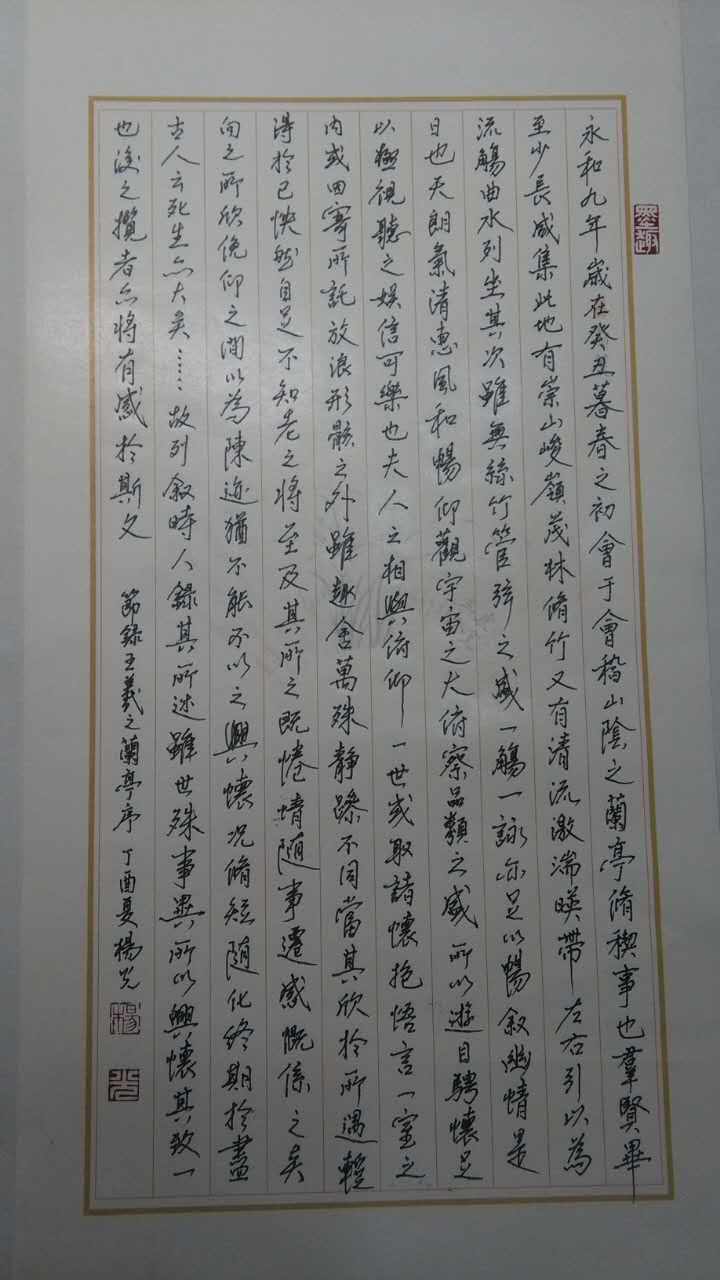 永和九年歲在癸丑暮春之初會于會稽山陰之蘭亭脩稧事也羣賢畢
至少長咸集此地有崇山峻嶺茂林脩竹又有清流激湍暎帶左右引以為
流觴曲水列坐其次雖無絲竹管弦之盛一觴一詠亦足以暢叙幽情是
日也天朗氣清惠風和暢仰觀宇宙之大俯察品類之盛所以遊目騁懷足
以極視聽之娛信可樂也夫人之相與俯仰一世或取諸懷抱悟言一室之
內或因寄所託放浪形骸之外雖趣舍萬殊静躁不同當其欣於所遇蹔
得於己怏然自足不知老之將至及其所之既惓情随事遷感慨係之矣
向之所欣俛仰之間以為陳迹猶不能不以之興懷况脩短随化終期於盡
古人云死生亦大矣……故列叙時人錄其所述雖世殊事異所以興懷其致一
也後之攬者亦將有感於斯文 節録王羲之蘭亭序 丁酉夏楊光
墨趣
楊
光